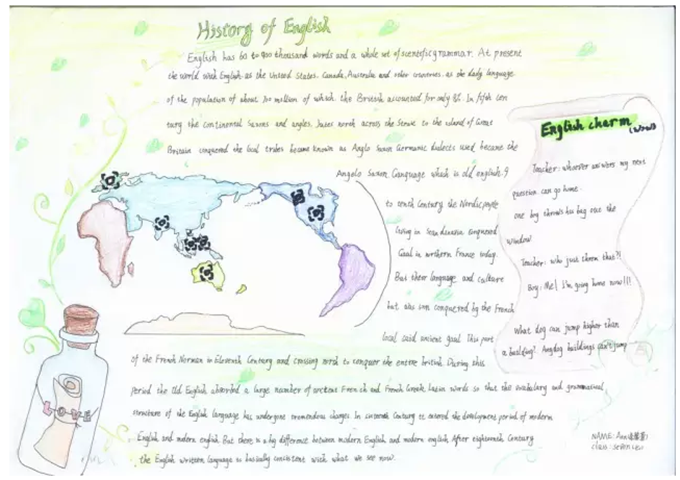 History of English
English has 60 to 900 thousand words and a whole set of scientific grammar. At present
the world with English as the United States, Canada, Australia and other countries as the daily language
of the population of about 300 million of which the British accounted for only 8%. In fifth cen
tury the continental Saxons and angles, Jutes north across the Strait to the island of Great
Britain conquered the local tribes became known as Anglo Saxon Germanic dialects used became the
Anglo Saxon Language which is old english. 9
to tenth Century the Nordic people
living in conquered
Gaul in northern France today.
But their language and culture
but was conquered by the French
local said ancient gaul. This part
of the French Norman in Eleventh Century and crossing north to conquer the entire british. During this
period the Old English absorbed a large number of ancient French and French Greek, Latin words so that this vocabulary and grammatical
structure of the English language has undergone tremendous changes. In Century entered the development period of modern
English and modern english. But there is a big difference between modern English and modern english. After eighteenth Century
the English written language is basically consistent with what we see now.
English charm
Teacher: whoever answers my next
question can go home.
one boy throws his bag out the
window
Teacher: who just threw that?!
Boy: Me! I'm going home now!!!
What dog can jump higher than
a building? Anydog buildings can't jump
NAME: Ann
CLASS: SEVEN